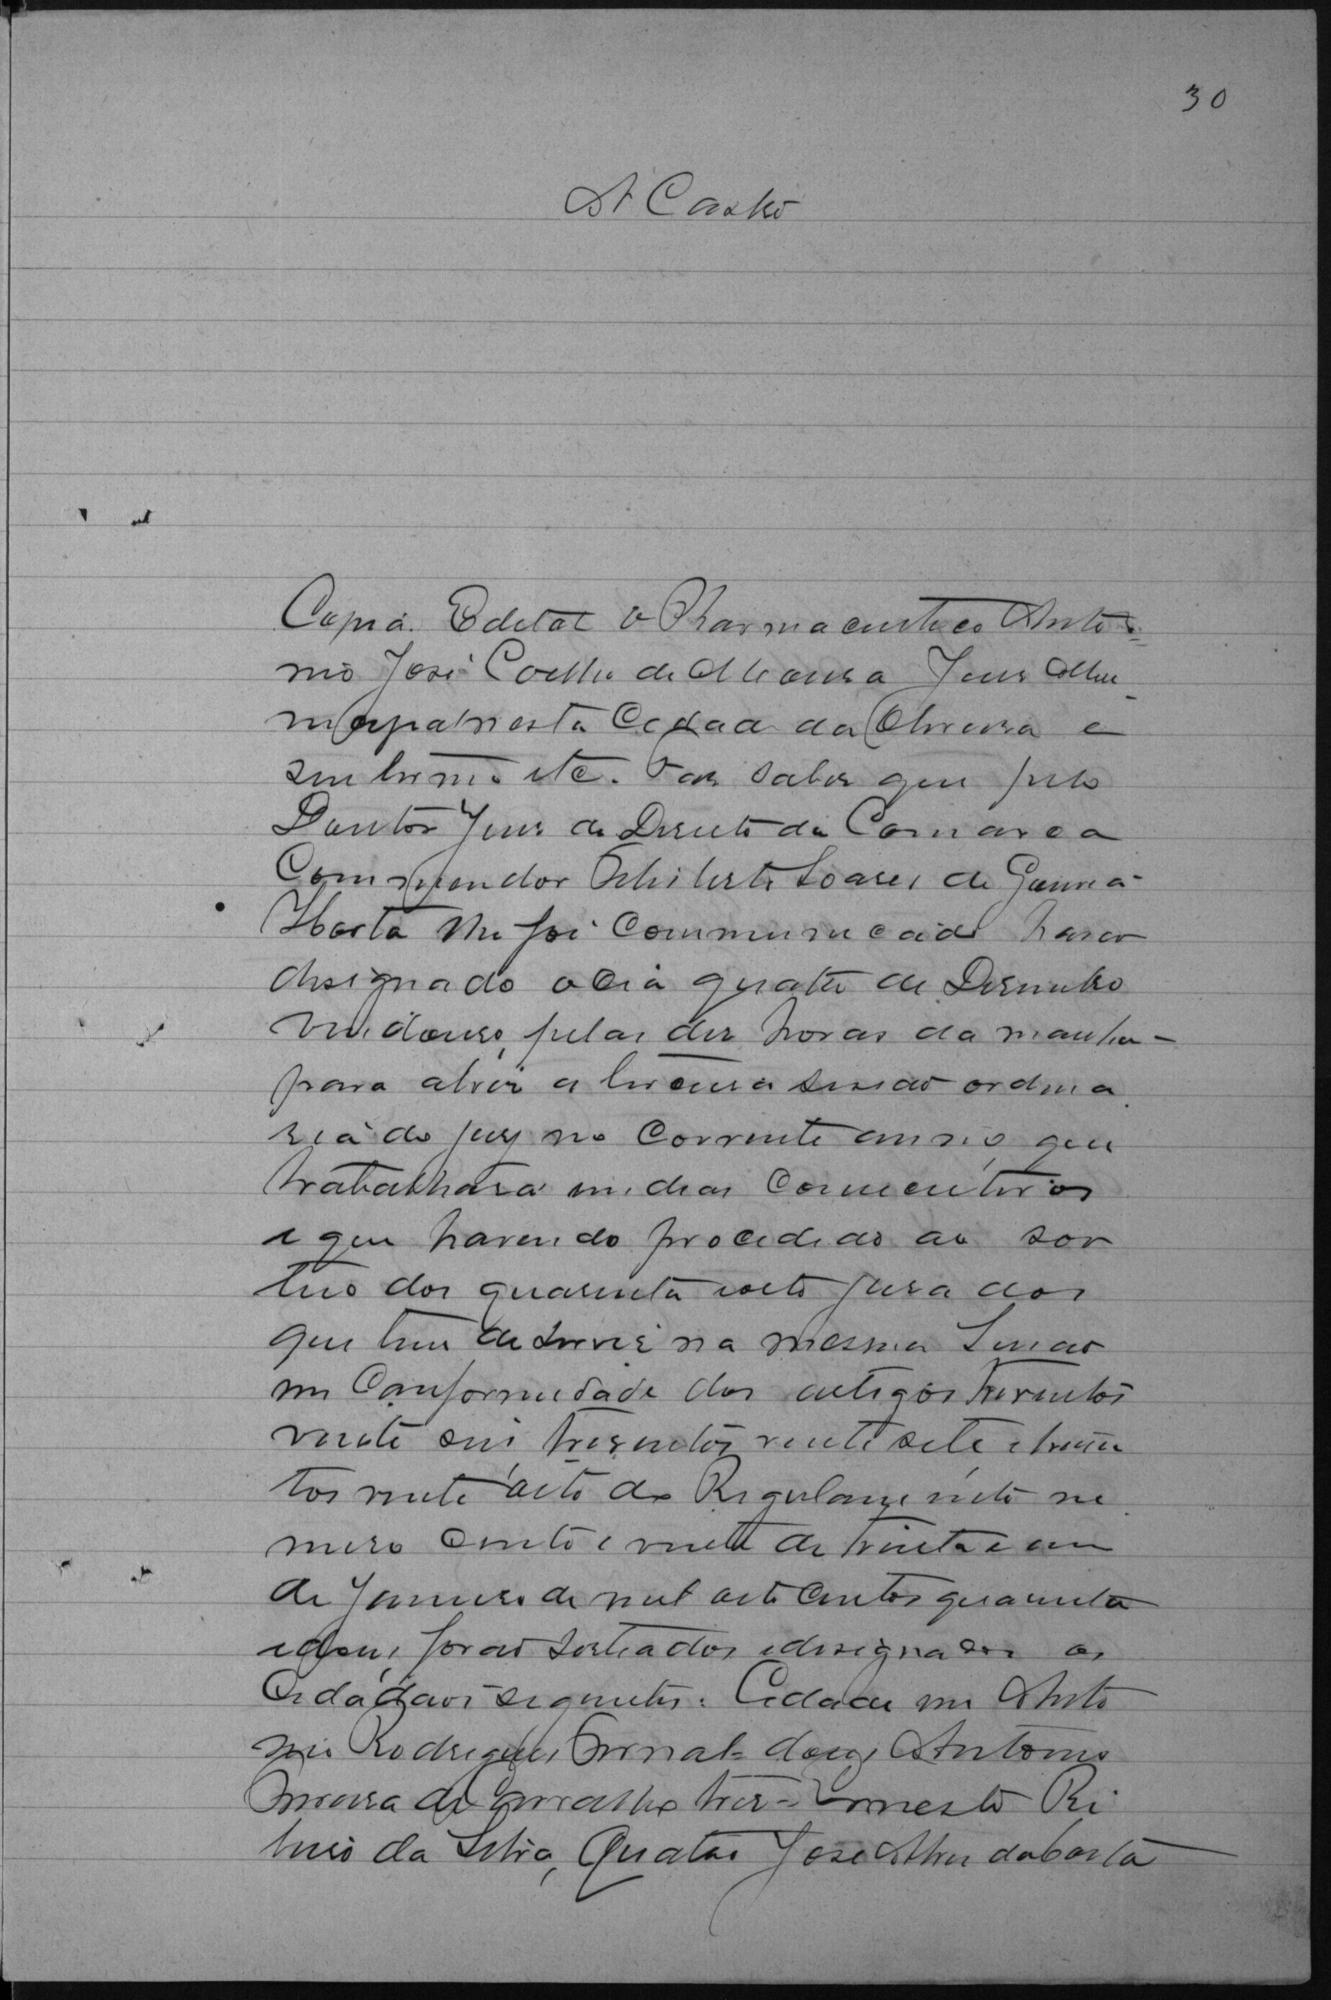 30
A Castro
Copia. Edital o Pharmaceutico Anto=
nio José Coelho de Moura Juiz Mu-
nicipal nesta Cidade da Oliveira e
seu termo etc. Faz saber que pelo
Doutor Juiz de Direito da Comarca
Commendor Soares de Gouvea
Horta lhe foi communicado haver
designado o dia quatro de Desembro
vindouro, pelas dez horas da manhã
para abrir a terceira sessão ordina
ria do jury no corrente anno, que
trabalhará em dias consecutivos
e que havendo procedido ao sor
teio dos quarenta e oito jurados
que tem de servir na mesma Sessão
em Conformidade dos artigos trezentos
vinte seis, trezentos vinte sete e trezen
tos vinte oito do Regulamento nu
mero cento e vinte de trinta e um
de Janeiro de mil oito centos quarenta
e dous, forão sorteados e designados os
Cidadãos seguintes: Cidade um Anto
nio Rodrigues dous Antonio
de Carvalho tres - Ernesto Ri
beiro da Silva, Quatro José Alves da Costa